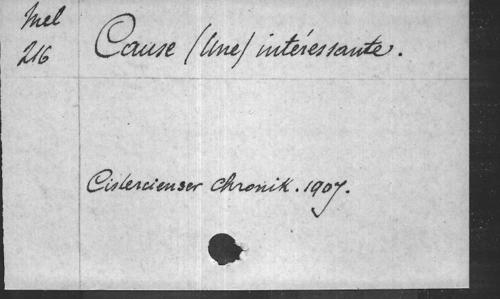 Mel
216
Cause (Une) intéressante.
Cistercienser Chronik. 1907.